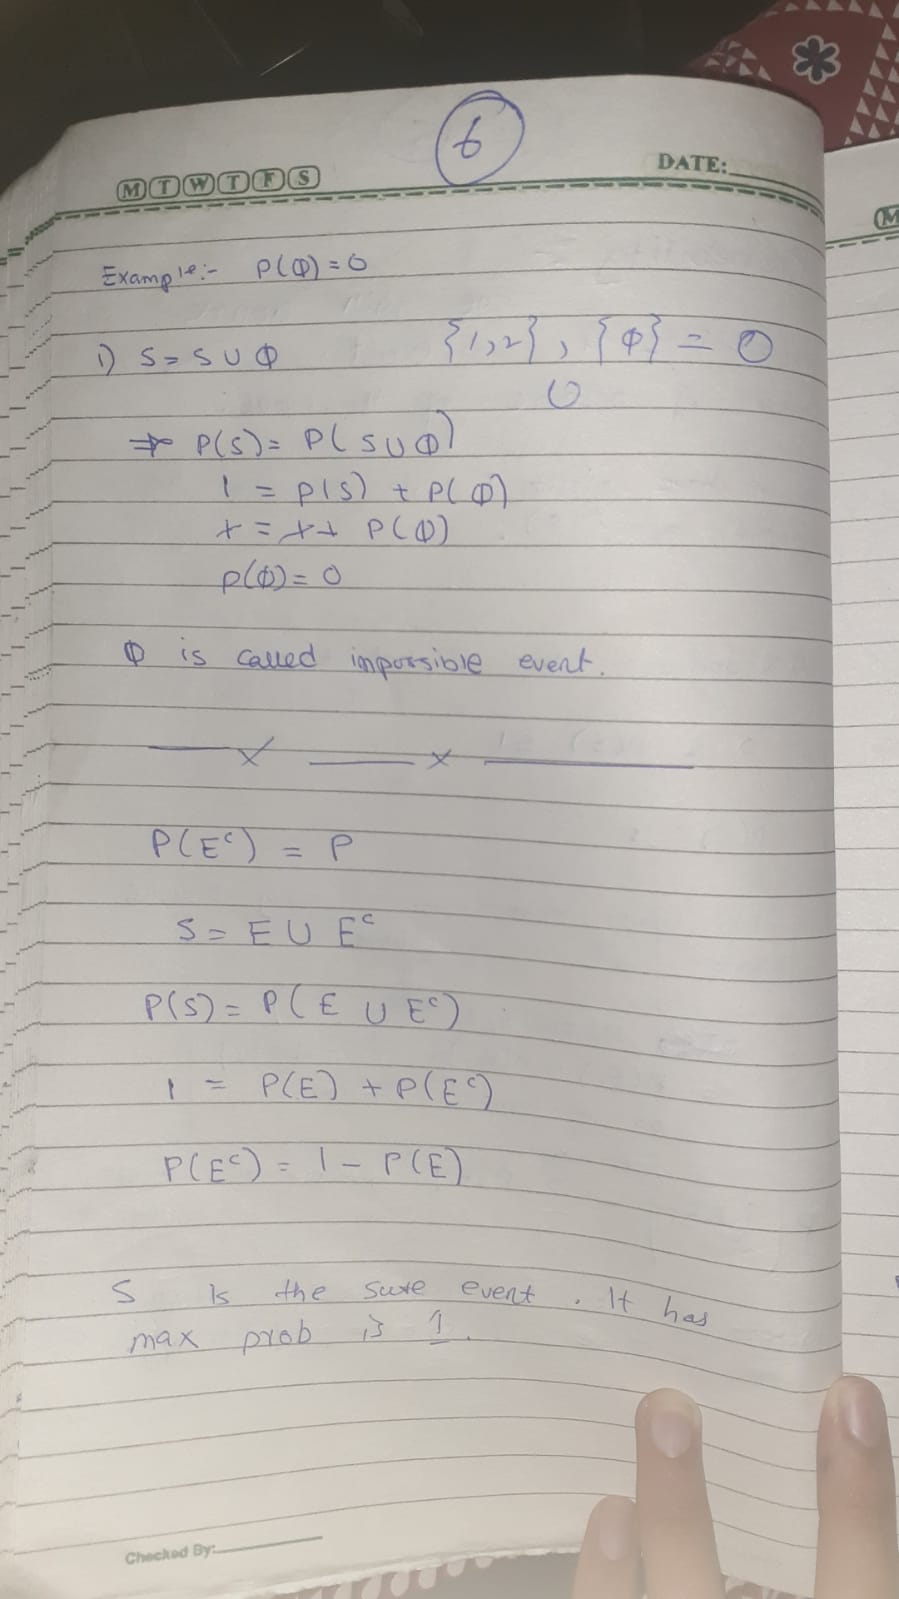 6
M T W T F S
DATE:
Example:- P(Φ) = 0
1) S = S U Φ {1,2}, {Φ} = 0
U
⇒ P(S) = P(S U Φ)
1 = P(S) + P(Φ)
1 = 1 + P(Φ)
P(Φ) = 0
Φ is called impossible event.
P(Eᶜ) = P
S = E U Eᶜ
P(S) = P(E U Eᶜ)
1 = P(E) + P(Eᶜ)
P(Eᶜ) = 1 - P(E)
S is the sure event. It has
max prob is 1.
Checked By: